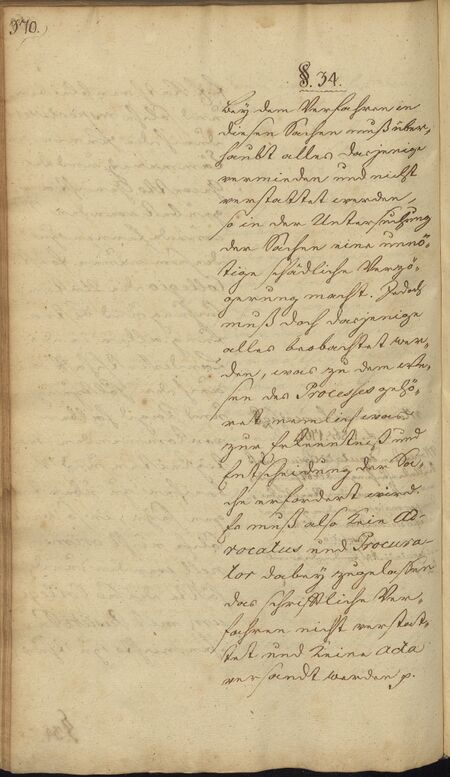 370.
§. 34.
Bey dem Verfahren in
diesen Sachen muß über,
haubt alles dasjenige
vermieden und nicht
verstattet werden,
so in der Untersuchung
der Sachen eine unnö,
tige schädliche Verzö,
gerung macht. Jedoch
muß doch dasjenige
alles beobachtet wer,
den, was zu dem We,
sen des Processes gehö,
ret nemlich was
zur Erkenntniß und
Entscheidung der Sa,
che erfordert wird.
Es muß also kein Ad-
vocatus und Procura-
tor dabey zugelassen
das schrifftliche Ver,
fahren nicht verstat,
tet und keine acta
versandt werden p.